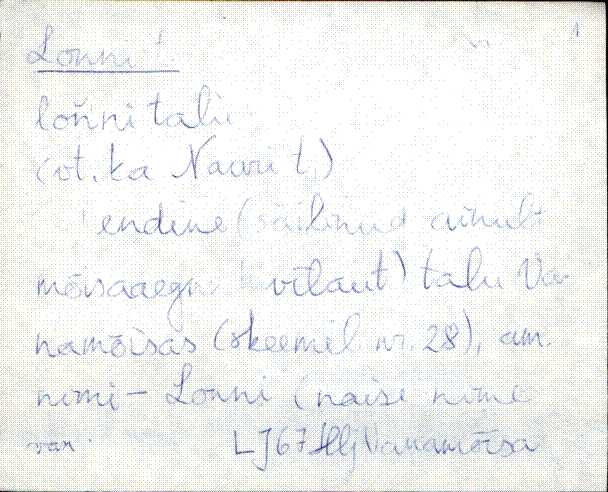 Lonni
1
lon̆ni talu
(vt. ka Nauri t.)
endine (säilinud ainult
mõisaaegne viĺaut) talu Va-
namõisas (skeemil nr. 28), am.
nimi - Lonni (naise nime
Vanamõisa